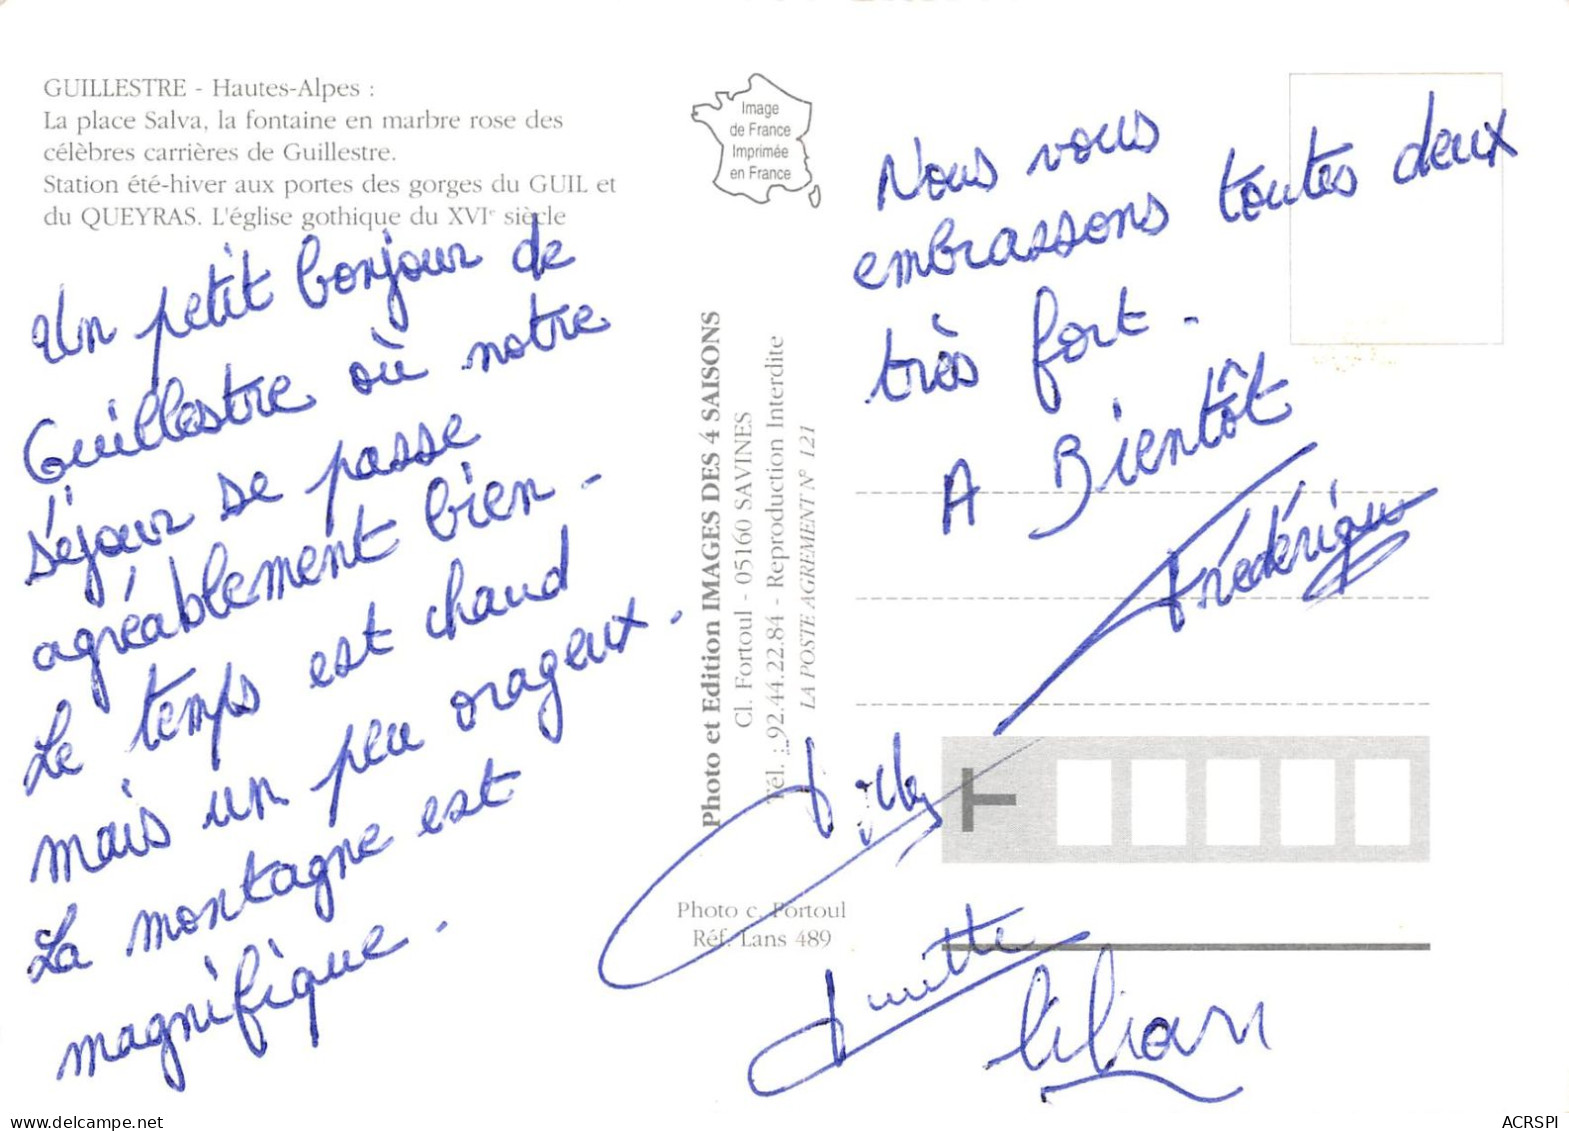 GUILLESTRE - Hautes-Alpes :
La place Salva, la fontaine en marbre rose des
célèbres carrières de Guillestre.
Station été-hiver aux portes des gorges du GUIL et
du QUEYRAS. L'église gothique du XVIe siècle
Un petit bonjour de
Guillestre où notre
séjour se passe
agréablement bien -
Le temps est chaud
mais un peu orageux.
La montagne est
magnifique.
Image
de France
Imprimée
en France
Photo et Edition IMAGES DES 4 SAISONS
Cl. Fortoul - 05160 SAVINES
Tél. : 92.44.22.84 - Reproduction Interdite
LA POSTE AGREMENT N° 121
Photo c. Portoul
Réf. Lans 489
Nous vous
embrassons toutes deux
très fort -
A Bientôt
Frédérique
Lilian
ACRSPI